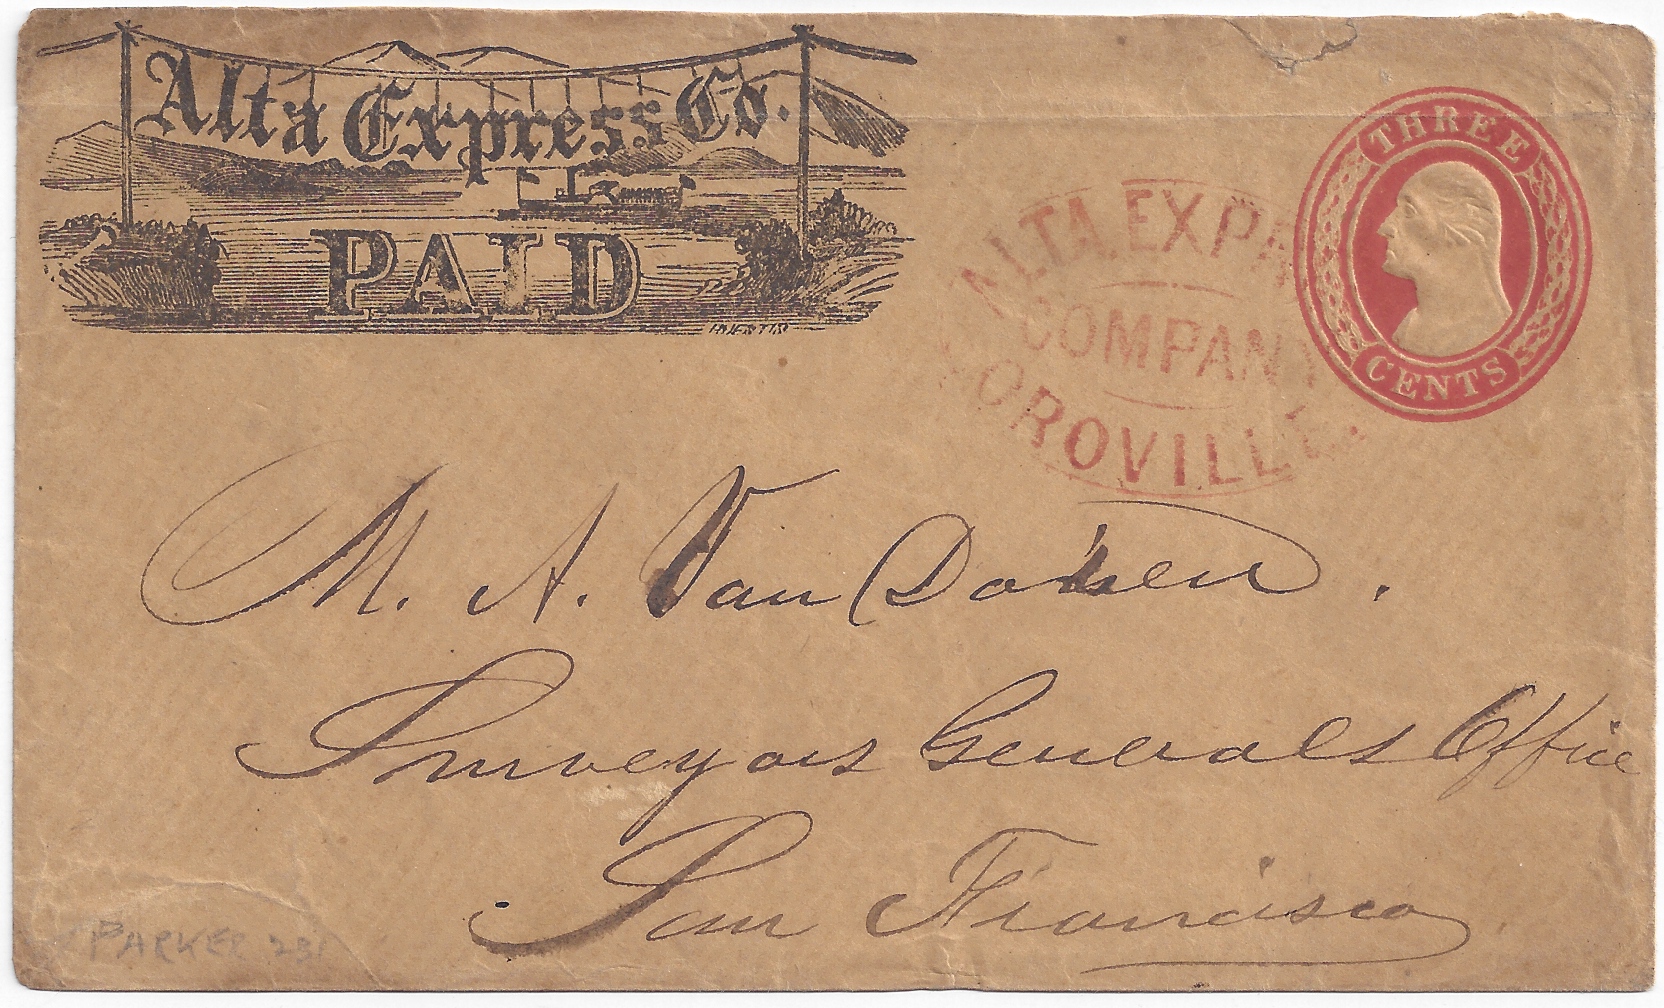 Alta Express Co.
PAID
ALTA EXP
COMPAN
OROVILLE.
THREE
CENTS
M. A. Van Doren.
Surveyors Generals Office
San Francisco
PARKER 231